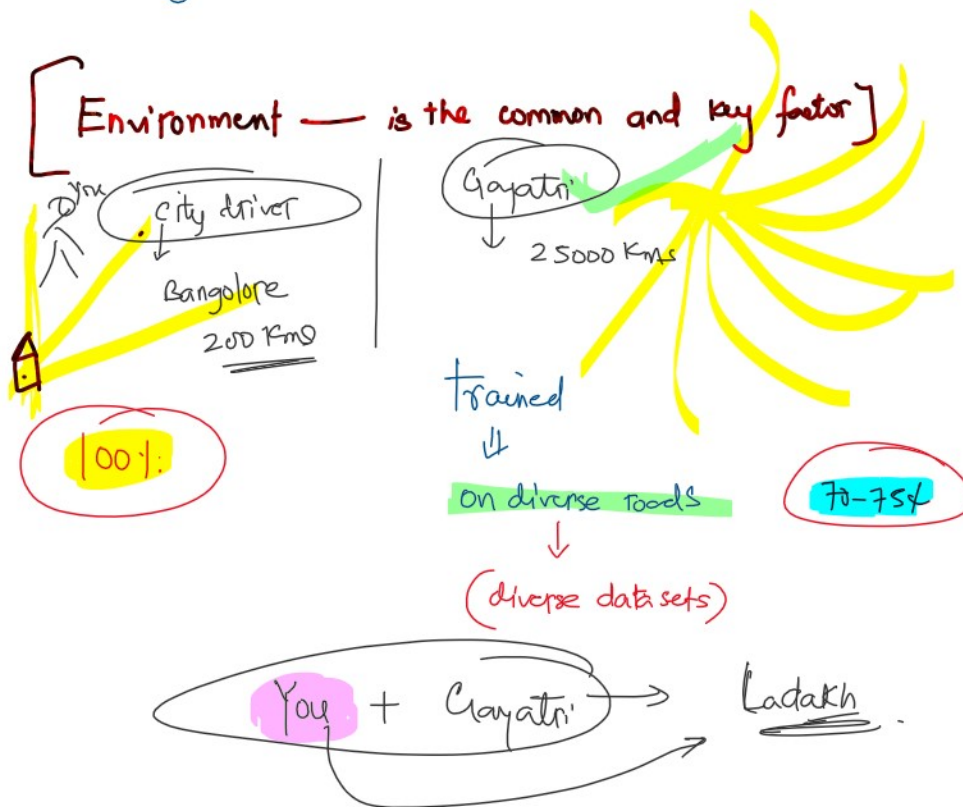 [Environment — is the common and key factor]
you
city driver
Bangolore
200 Kms
100%
Gayatri
25000 Kms
trained
on diverse roads
70-75%
(diverse datasets)
You + Gayatri → Ladakh